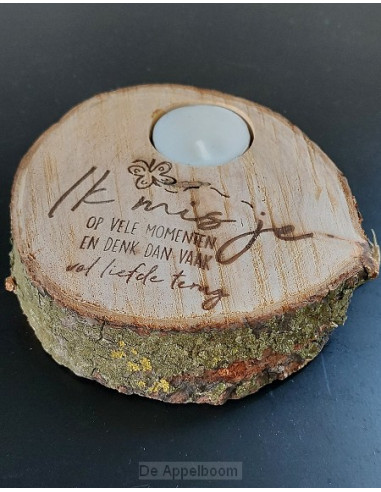 Ik mis je
OP VELE MOMENTEN
EN DENK DAN VAAK
vol liefde terug
De Appelboom